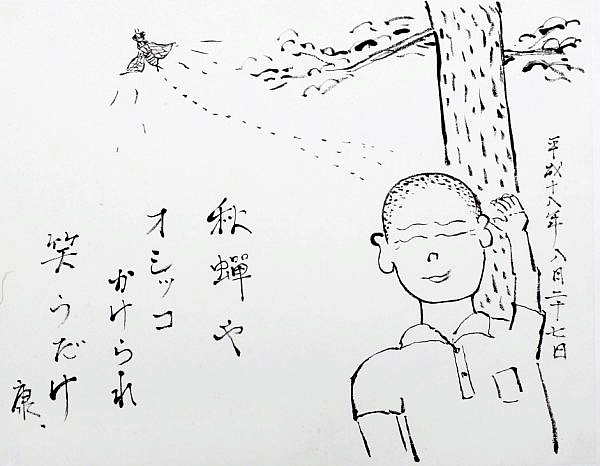 平成十八年八月二十七日
秋蟬や
オシッコ
かけられ
笑うだけ
康、